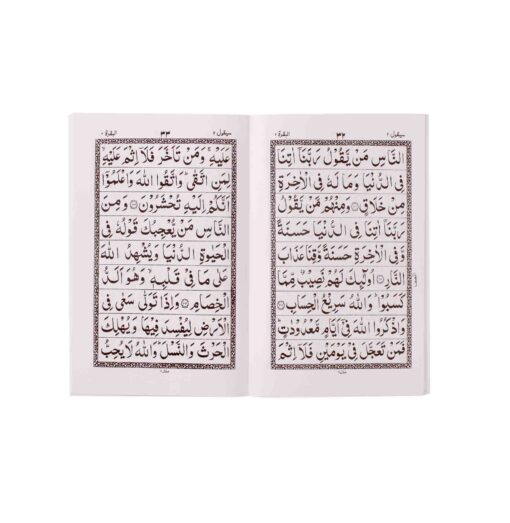 سيقول ٢
٣٢
البقرة ٢
النَّاسِ مَنْ يَّقُوْلُ رَبَّنَاۤ اٰتِنَا
فِى الدُّنْيَا وَمَا لَهٗ فِى الْاٰخِرَةِ
مِنْ خَلَاقٍ ۝ وَمِنْهُمْ مَّنْ يَّقُوْلُ
رَبَّنَاۤ اٰتِنَا فِى الدُّنْيَا حَسَنَةً
وَّفِى الْاٰخِرَةِ حَسَنَةً وَّقِنَا عَذَابَ
النَّارِ ۝ اُولٰٓئِكَ لَهُمْ نَصِيْبٌ مِّمَّا
كَسَبُوْا ؕ وَاللّٰهُ سَرِيْعُ الْحِسَابِ ۝
وَاذْكُرُوا اللّٰهَ فِىْۤ اَيَّامٍ مَّعْدُوْدٰتٍ ؕ
فَمَنْ تَعَجَّلَ فِىْ يَوْمَيْنِ فَلَاۤ اِثْمَ
منزل ١
سيقول ٢
٣٣
البقرة ٢
عَلَيْهِ ۚ وَمَنْ تَاَخَّرَ فَلَاۤ اِثْمَ عَلَيْهِ ۙ
لِمَنِ اتَّقٰى ؕ وَاتَّقُوا اللّٰهَ وَاعْلَمُوْۤا
اَنَّكُمْ اِلَيْهِ تُحْشَرُوْنَ ۝ وَمِنَ
النَّاسِ مَنْ يُّعْجِبُكَ قَوْلُهٗ فِى
الْحَيٰوةِ الدُّنْيَا وَيُشْهِدُ اللّٰهَ
عَلٰى مَا فِىْ قَلْبِهٖ ۙ وَهُوَ اَلَدُّ
الْخِصَامِ ۝ وَاِذَا تَوَلّٰى سَعٰى فِى
الْاَرْضِ لِيُفْسِدَ فِيْهَا وَيُهْلِكَ
الْحَرْثَ وَالنَّسْلَ ؕ وَاللّٰهُ لَا يُحِبُّ
منزل ١